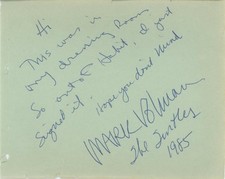 Hi
This was in
my dressing Room
So out of Habit, I just
Signed it. Hope you don't mind
MARK VOLMAN
The Turtles
1985